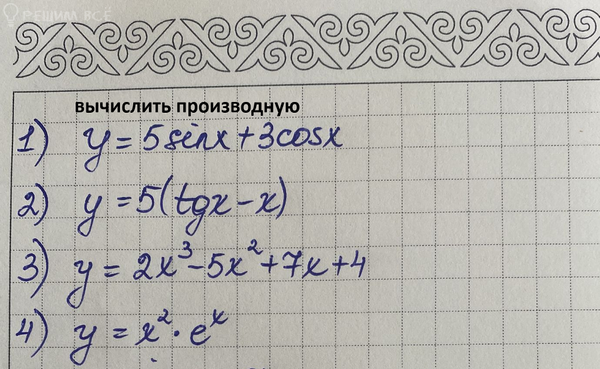 РЕШИМ ВСЁ
вычислить производную
1) y = 5sinx + 3cosx
2) y = 5(tgx - x)
3) y = 2x³ - 5x² + 7x + 4
4) y = x² · eˣ